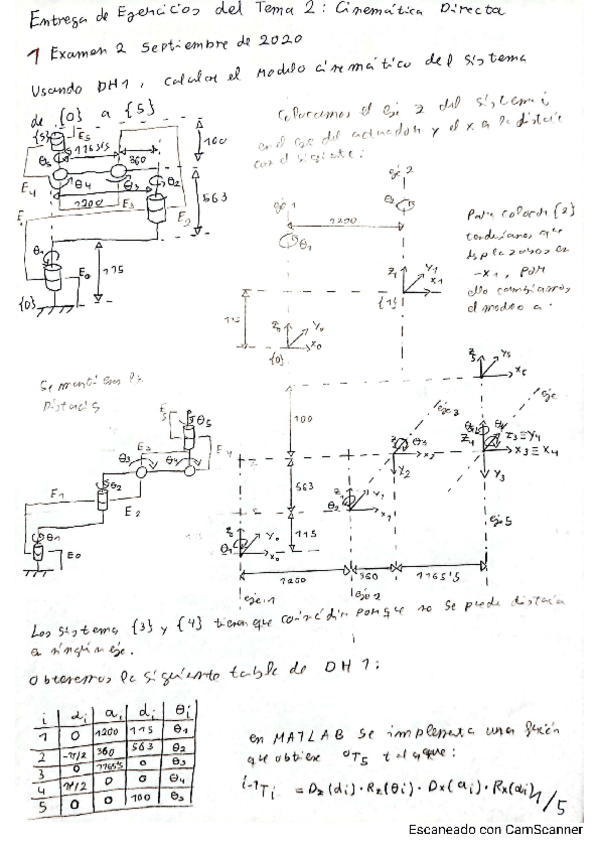 Entrega de Ejercicios del Tema 2: Cinemática Directa
1 Examen 2 Septiembre de 2020
Usando DH1, calcular el modelo cinemático del sistema
de {0} a {5}
Colocamos el eje Z del sistema i
en el eje del actuador y el x a la distancia
con el siguiente:
{5}
E5
θ5
1165's
360
100
E4
θ4
θ3
θ2
1200
E3
E2
563
θ1
E0
115
{0}
eje 1
θ1
1200
eje 2
θ2
Z1
Y1
X1
{1}
115
Z0
Y0
X0
{0}
Para colocar {2}
tendríamos que
desplazarnos en
-x1, por
ello cambiamos
el modelo a:
Se mantienen las
Distancias
θ5
E3
θ3
θ4
E1
θ2
E2
θ1
E0
Z5
Y5
X5
100
eje 3
eje
θ3
X2
Y2
Z4
Z3≡Y4
X3≡X4
Y3
563
Z1
Y1
X1
θ2
eje 5
115
Z0
Y0
X0
θ1
1200
360
1165's
eje 1
eje 2
Los sistema {3} y {4} tienen que coincidir porque no se puede distancia
a ningún eje.
Obtenemos la siguiente tabla de DH1:
i αi ai di θi
1 0 1200 115 θ1
2 -π/2 360 563 θ2
3 0 1165's 0 θ3
4 π/2 0 0 θ4
5 0 0 100 θ5
en MATLAB se implementa una función
que obtiene 0T5 tal que:
i-1Ti = Dz(di)·Rz(θi)·Dx(ai)·Rx(αi)
1/5
Escaneado con CamScanner